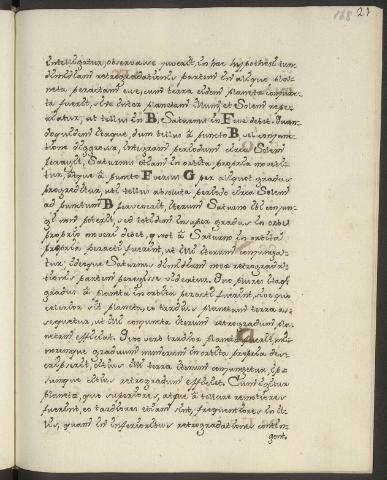 168 23
intelligatur, observasse juverit, in hac hypothesi tunc
dimidiam retrogradationis partem in aliquo pla-
neta peractam esse, cum terra eidem planetæ conjunc-
ta fuerit, sive inter planetam illum et Solem repe-
riatur, ut tellus in B, Saturnus in F esse debet. Quan-
doquidem itaque, dum tellus a puncto B, sui conjunc-
tione digressa, integram periodum circa Solem
peragit, Saturnus etiam in orbita propria movebi-
tur, atque a puncto F versus G per aliquot gradus
progredietur, ubi tellus absoluta periodo circa Solem
ad punctum B pervenerit, iterum Saturno ibi conjun-
gi non poterit, sed totidem insuper gradus in orbe
proprio moveri debet, quot a Saturno in orbita
propria peracti fuerint, ut illi iterum conjunga-
tur; ideoque Saturnus dimidiam novæ retrograda-
tionis partem peregisse videatur. Quo plures itaque
gradus a planeta in orbita peracti fuerint, sive quo
celerior sit planeta, eo tardius planetam terra as-
sequetur, ut illi conjuncta iterum retrogradum pla-
netam efficiat. Quo vero tardior planeta fuerit, mi-
noremque graduum numerum in orbita propria des-
cripserit, citius illi terra iterum conjungetur, ip-
sumque citius retrogradum efficiet. Cum igitur
planetæ, quo superiores, atque a tellure remotiores
fuerint, eo tardiores etiam sint, frequentiores in il-
lis, quam in inferioribus retrogradationes contin-
gent.